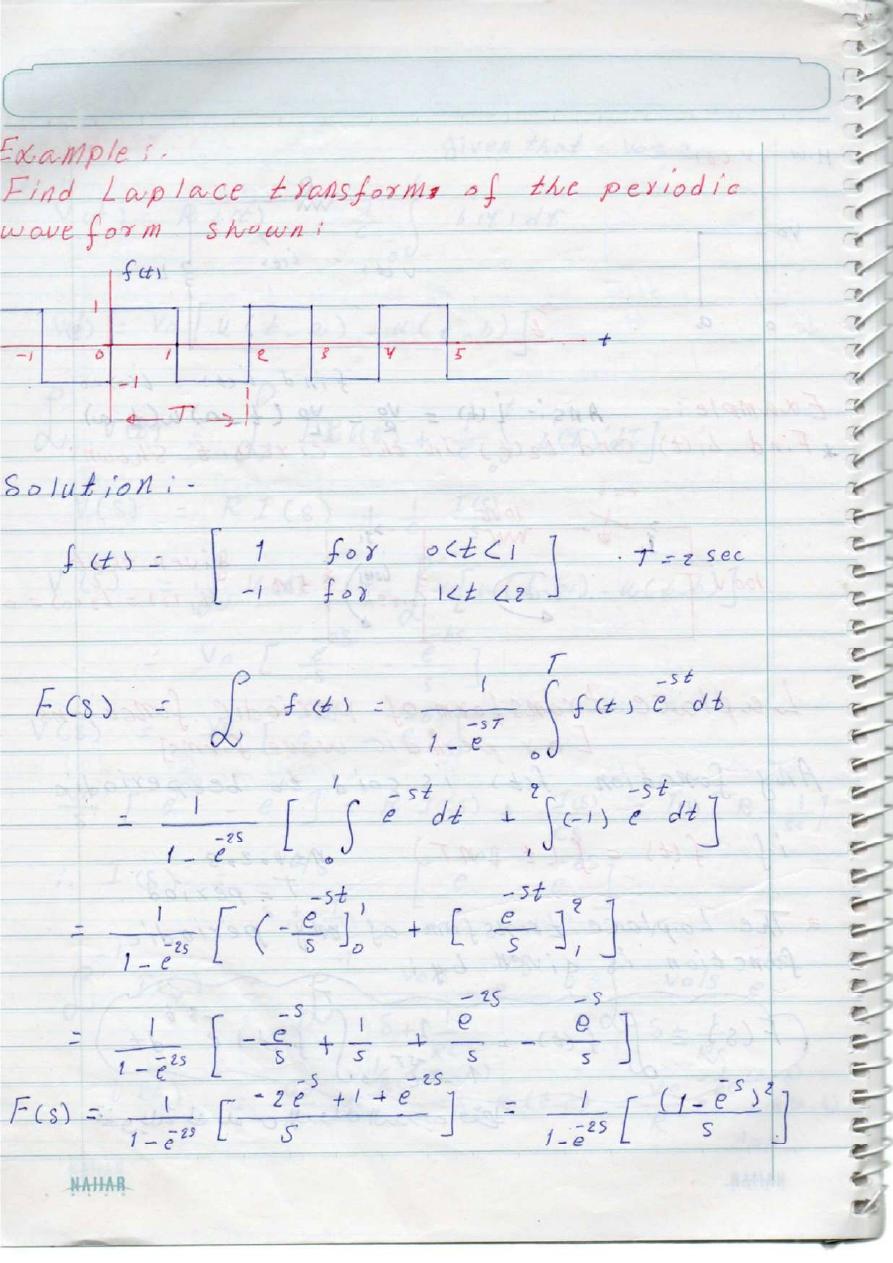 Example :.
Find Laplace transform of the periodic
wave form shown:
f(t)
1
-1 0 1 2 3 4 5 t
-1
T
Solution :-
f(t) = [ 1 for 0<t<1 ] . T = 2 sec
[ -1 for 1<t<2 ]
F(s) = ℒ f(t) = 1/(1-e^{-sT}) ∫_0^T f(t) e^{-st} dt
= 1/(1-e^{-2s}) [ ∫_0^1 e^{-st} dt + ∫_1^2 (-1) e^{-st} dt ]
= 1/(1-e^{-2s}) [ (-e^{-st}/s ]_0^1 + [ e^{-st}/s ]_1^2 ]
= 1/(1-e^{-2s}) [ -e^{-s}/s + 1/s + e^{-2s}/s - e^{-s}/s ]
F(s) = 1/(1-e^{-2s}) [ (-2e^{-s} + 1 + e^{-2s})/s ] = 1/(1-e^{-2s}) [ (1-e^{-s})^2/s ]
NAJJAR